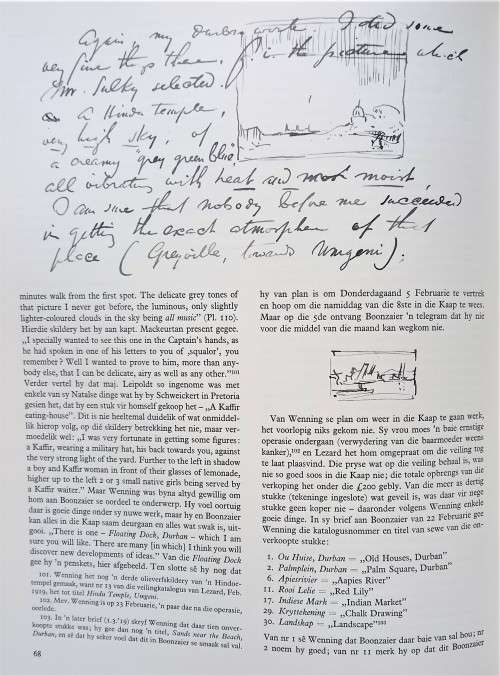 Again, my Durban work. I did some
very fine things there, f.i. the picture which
Mr. Sulky selected.
a Hindu Temple,
very high sky, of
a creamy grey green blue,
all vibrating with heat and most moist,
I am sure that nobody before me succeeded
in getting the exact atmosphere of that
place (Greyville, towards Umgeni);
minutes walk from the first spot. The delicate grey tones of
that picture I never got before, the luminous, only slightly
lighter-coloured clouds in the sky being all music” (Pl. 110).
Hierdie skildery het hy aan kapt. Mackeurtan present gegee.
„I specially wanted to see this one in the Captain's hands, as
he had spoken in one of his letters to you of ,squalor', you
remember? Well I wanted to prove to him, more than any-
body else, that I can be delicate, airy as well as any other.”101
Verder vertel hy dat maj. Leipoldt so ingenome was met
enkele van sy Natalse dinge wat hy by Schweickert in Pretoria
gesien het, dat hy een stuk vir homself gekoop het – „A Kaffir
eating-house”. Dit is nie heeltemal duidelik of wat onmiddel-
lik hierop volg, op dié skildery betrekking het nie, maar ver-
moedelik wel: „I was very fortunate in getting some figures:
a Kaffir, wearing a military hat, his back towards you, against
the very strong light of the yard. Further to the left in shadow
a boy and Kaffir woman in front of their glasses of lemonade,
higher up to the left 2 or 3 small native girls being served by
a Kaffir waiter.” Maar Wenning was byna altyd gewillig om
hom aan Boonzaier se oordeel te onderwerp. Hy voel oortuig
daar is goeie dinge onder sy nuwe werk, maar hy en Boonzaier
kan alles in die Kaap saam deurgaan en alles wat swak is, uit-
gooi. „There is one – Floating Dock, Durban – which I am
sure you will like. There are many [in which] I think you will
discover new developments of ideas.” Van die Floating Dock
gee hy 'n penskets, hier afgebeeld. Ten slotte sê hy nog dat
101. Wenning het nog 'n derde olieverfskildery van 'n Hindoe-
tempel gemaak, want nr 13 van die veilingkatalogus van Lezard, Feb.
1919, het tot titel Hindu Temple, Umgeni.
102. Mev. Wenning is op 23 Februarie, 'n paar dae na die operasie,
oorlede.
103. In 'n later brief (1.3.'19) skryf Wenning dat daar tien onver-
koopte stukke was; hy gee dan nog 'n titel, Sands near the Beach,
Durban, en sê dat hy seker voel dat dit in Boonzaier se smaak sal val.
68
hy van plan is om Donderdagaand 5 Februarie te vertrek
en hoop om die namiddag van die 8ste in die Kaap te wees.
Maar op die 5de ontvang Boonzaier 'n telegram dat hy nie
voor die middel van die maand kan wegkom nie.
Van Wenning se plan om weer in die Kaap te gaan werk,
het voorlopig niks gekom nie. Sy vrou moes 'n baie ernstige
operasie ondergaan (verwydering van die baarmoeder weens
kanker),102 en Lezard het hom omgepraat om die veiling tog
te laat plaasvind. Die pryse wat op die veiling behaal is, was
nie so goed soos in die Kaap nie; die totale opbrengs van die
verkoping het onder die £200 gebly. Van die meer as dertig
stukke (tekeninge ingeslote) wat geveil is, was daar vir nege
stukke geen koper nie – daaronder volgens Wenning enkele
goeie dinge. In sy brief aan Boonzaier van 22 Februarie gee
Wenning die katalogusnommer en titel van sewe van die on-
verkoopte stukke:
1. Ou Huise, Durban = „Old Houses, Durban”
2. Palmplein, Durban = „Palm Square, Durban”
6. Apiesrivier = „Aapies River”
11. Rooi Lelie = „Red Lily”
17. Indiese Mark = „Indian Market”
29. Kryttekening = „Chalk Drawing”
30. Landskap = „Landscape”103
Van nr 1 sê Wenning dat Boonzaier daar baie van sal hou; nr
2 noem hy goed; van nr 11 merk hy op dat dit Boonzaier